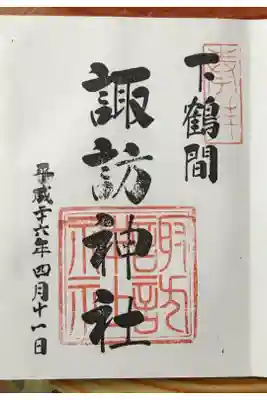 奉拝
下鶴間
諏訪神社
諏訪神社
平成十六年四月十一日